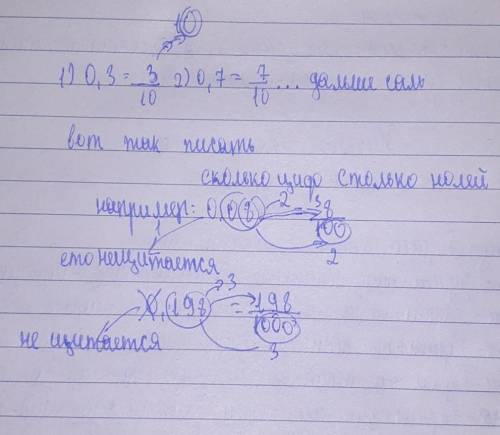 10
1) 0,3 = 3/10 2) 0,7 = 7/10 ... дальше сам
вот так писать
сколько цифр столько нолей
например: 0,08 2 = 8/100
1 2
ето нещитается
0,198 3 = 198/1000
не щитается 3